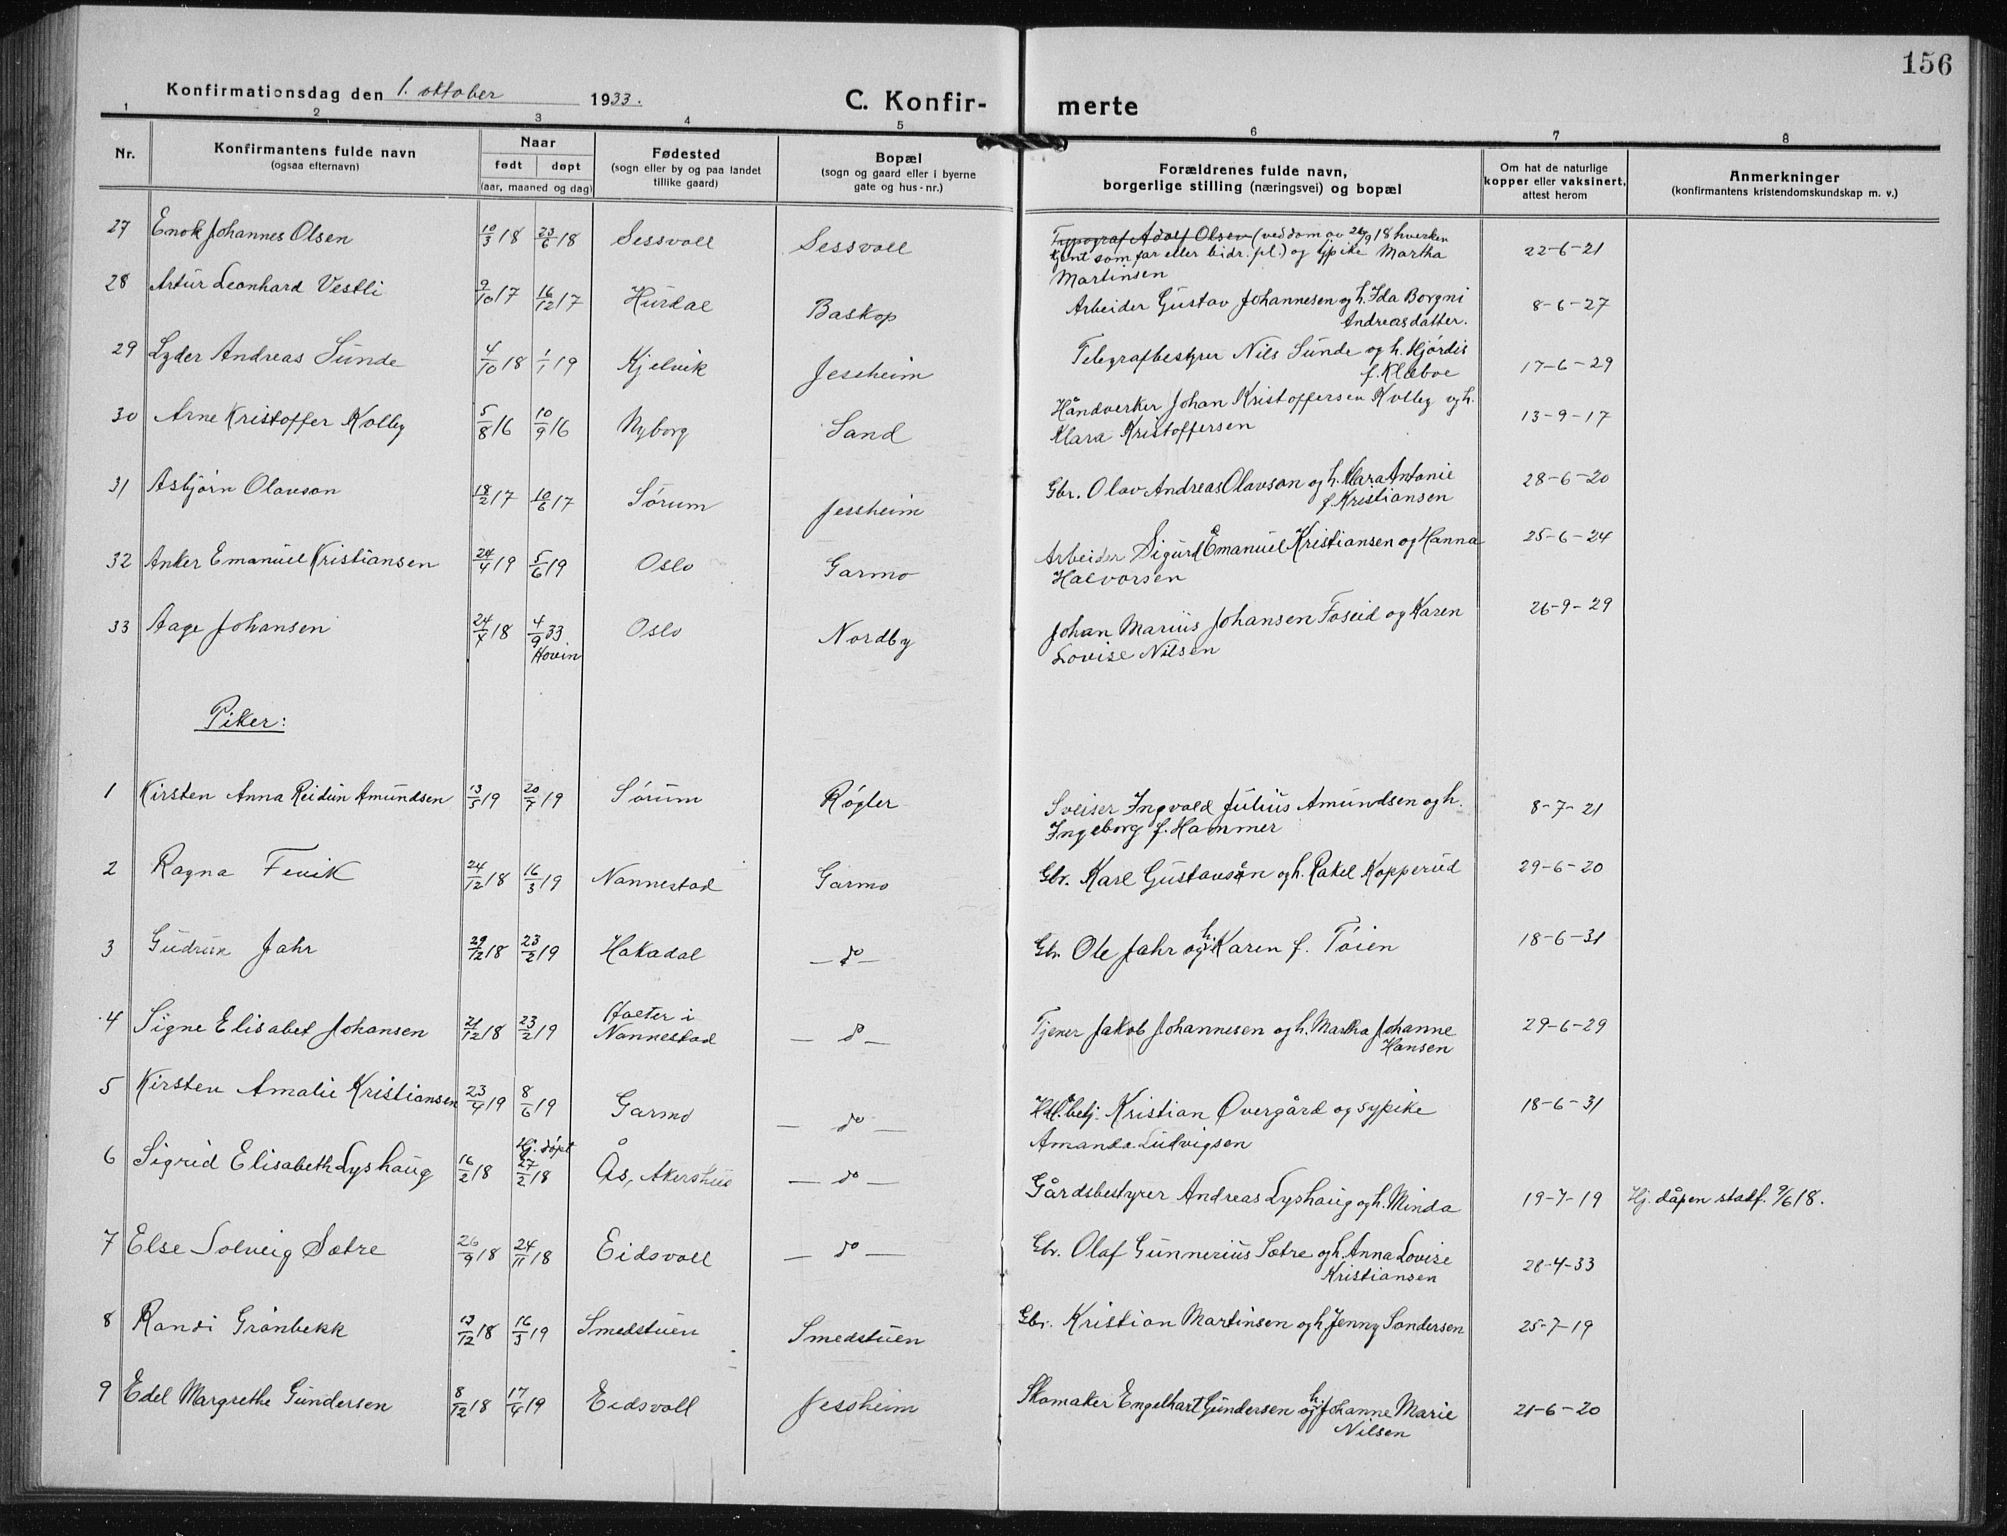 156
Konfirmationsdag den 1. oktober 1933.
C. Konfir- merte
1 2 3 4 5 6 7 8
Nr.
Konfirmantens fulde navn
(ogsaa efternavn)
Naar
født døpt
(aar, maaned og dag)
Fødested
(sogn eller by og paa landet
tillike gaard)
Bopæl
(sogn og gaard eller i byerne
gate og hus-nr.)
Forældrenes fulde navn,
borgerlige stilling (næringsvei) og bopæl
Om hat de naturlige
kopper eller vaksinert,
attest herom
Anmerkninger
(konfirmantens kristendomskundskap m. v.)
27 Enok Johannes Olsen 10/3 18 23/6 18 Sessvoll Sessvoll Typograf Adolf Olsen (ved dom av 26/9 18 hverken
kjent som far eller bidr. pl.) og pike Martha
Martinsen 22-6-21
28 Artur Leonhard Vestli 9/10 17 16/12 17 Hurdal Baskop Arbeider Gustav Johannesen og h. Ida Borgni
Andreasdatter. 8-6-27
29 Lyder Andreas Sunde 4/10 18 1/1 19 Kjelvik Jessheim Telegrafbestyrer Nils Sunde og h. Hjørdis
f. Klæboe 17-6-29
30 Arne Kristoffer Kolby 5/8 16 10/9 16 Nyborg Sand Håndverker Johan Kristoffersen Kolby og h.
Klara Kristoffersen 13-9-17
31 Asbjørn Olavson 18/2 17 10/6 17 Sørum Jessheim Gbr. Olav Andreas Olavson og h. Klara Antonie
f. Kristiansen 28-6-20
32 Anker Emanuel Kristiansen 24/4 19 5/6 19 Oslo Garmo Arbeider Sigurd Emanuel Kristiansen og Hanna
Halvorsen 25-6-24
33 Aage Johansen 24/4 18 4/9 33 Oslo Nordby Johan Marius Johansen Foseid og Karen
Hovin Lovise Nilsen 26-9-29
Piker:
1 Kirsten Anna Reidun Amundsen 13/5 19 20/7 19 Sørum Røgler Sveiser Ingvald Julius Amundsen og h.
Ingeborg f. Hammer 8-7-21
2 Ragna Fevik 24/12 18 16/3 19 Nannestad Garmo Gbr. Karl Gustavsøn og h. Rakel Kopperud 29-6-20
3 Gudrun Jahr 29/12 18 23/2 19 Hakadal — do — Gbr. Ole Jahr og h. Karen f. Tøien 18-6-31
4 Signe Elisabet Johansen 21/12 18 23/2 19 Holter i
Nannestad — do — Tjener Jakob Johannesen og h. Martha Johanne
Hansen 29-6-29
5 Kirsten Amalie Kristiansen 23/4 19 8/6 19 Garmo — do — Kristian Øvergård og sypike
Amanda Ludvigsen 18-6-31
6 Sigrid Elisabeth Lyshaug 16/2 18 Hj. døpt
27/2 18 Ås, Akershus — do — Gårdsbestyrer Andreas Lyshaug og h. Minda 19-7-19 Hj. dåpen stadf. 9/6 18.
7 Else Solveig Sætre 26/9 18 24/11 18 Eidsvoll — do — Gbr. Olaf Gunnerius Sætre og h. Anna Lovise
Kristiansen 28-4-33
8 Randi Grønbekk 13/12 18 16/3 19 Smedstuen Smedstuen Gbr. Kristian Martinsen og h. Jenny Sandersen 25-7-19
9 Edel Margrethe Gundersen 8/12 18 17/4 19 Eidsvoll Jessheim Skomaker Engelhart Gundersen og h. Johanne Marie
Nilsen 21-6-20